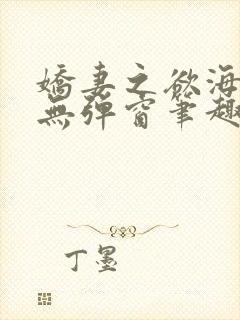 嬌妻之欲海
無彈窗筆趣
丁墨